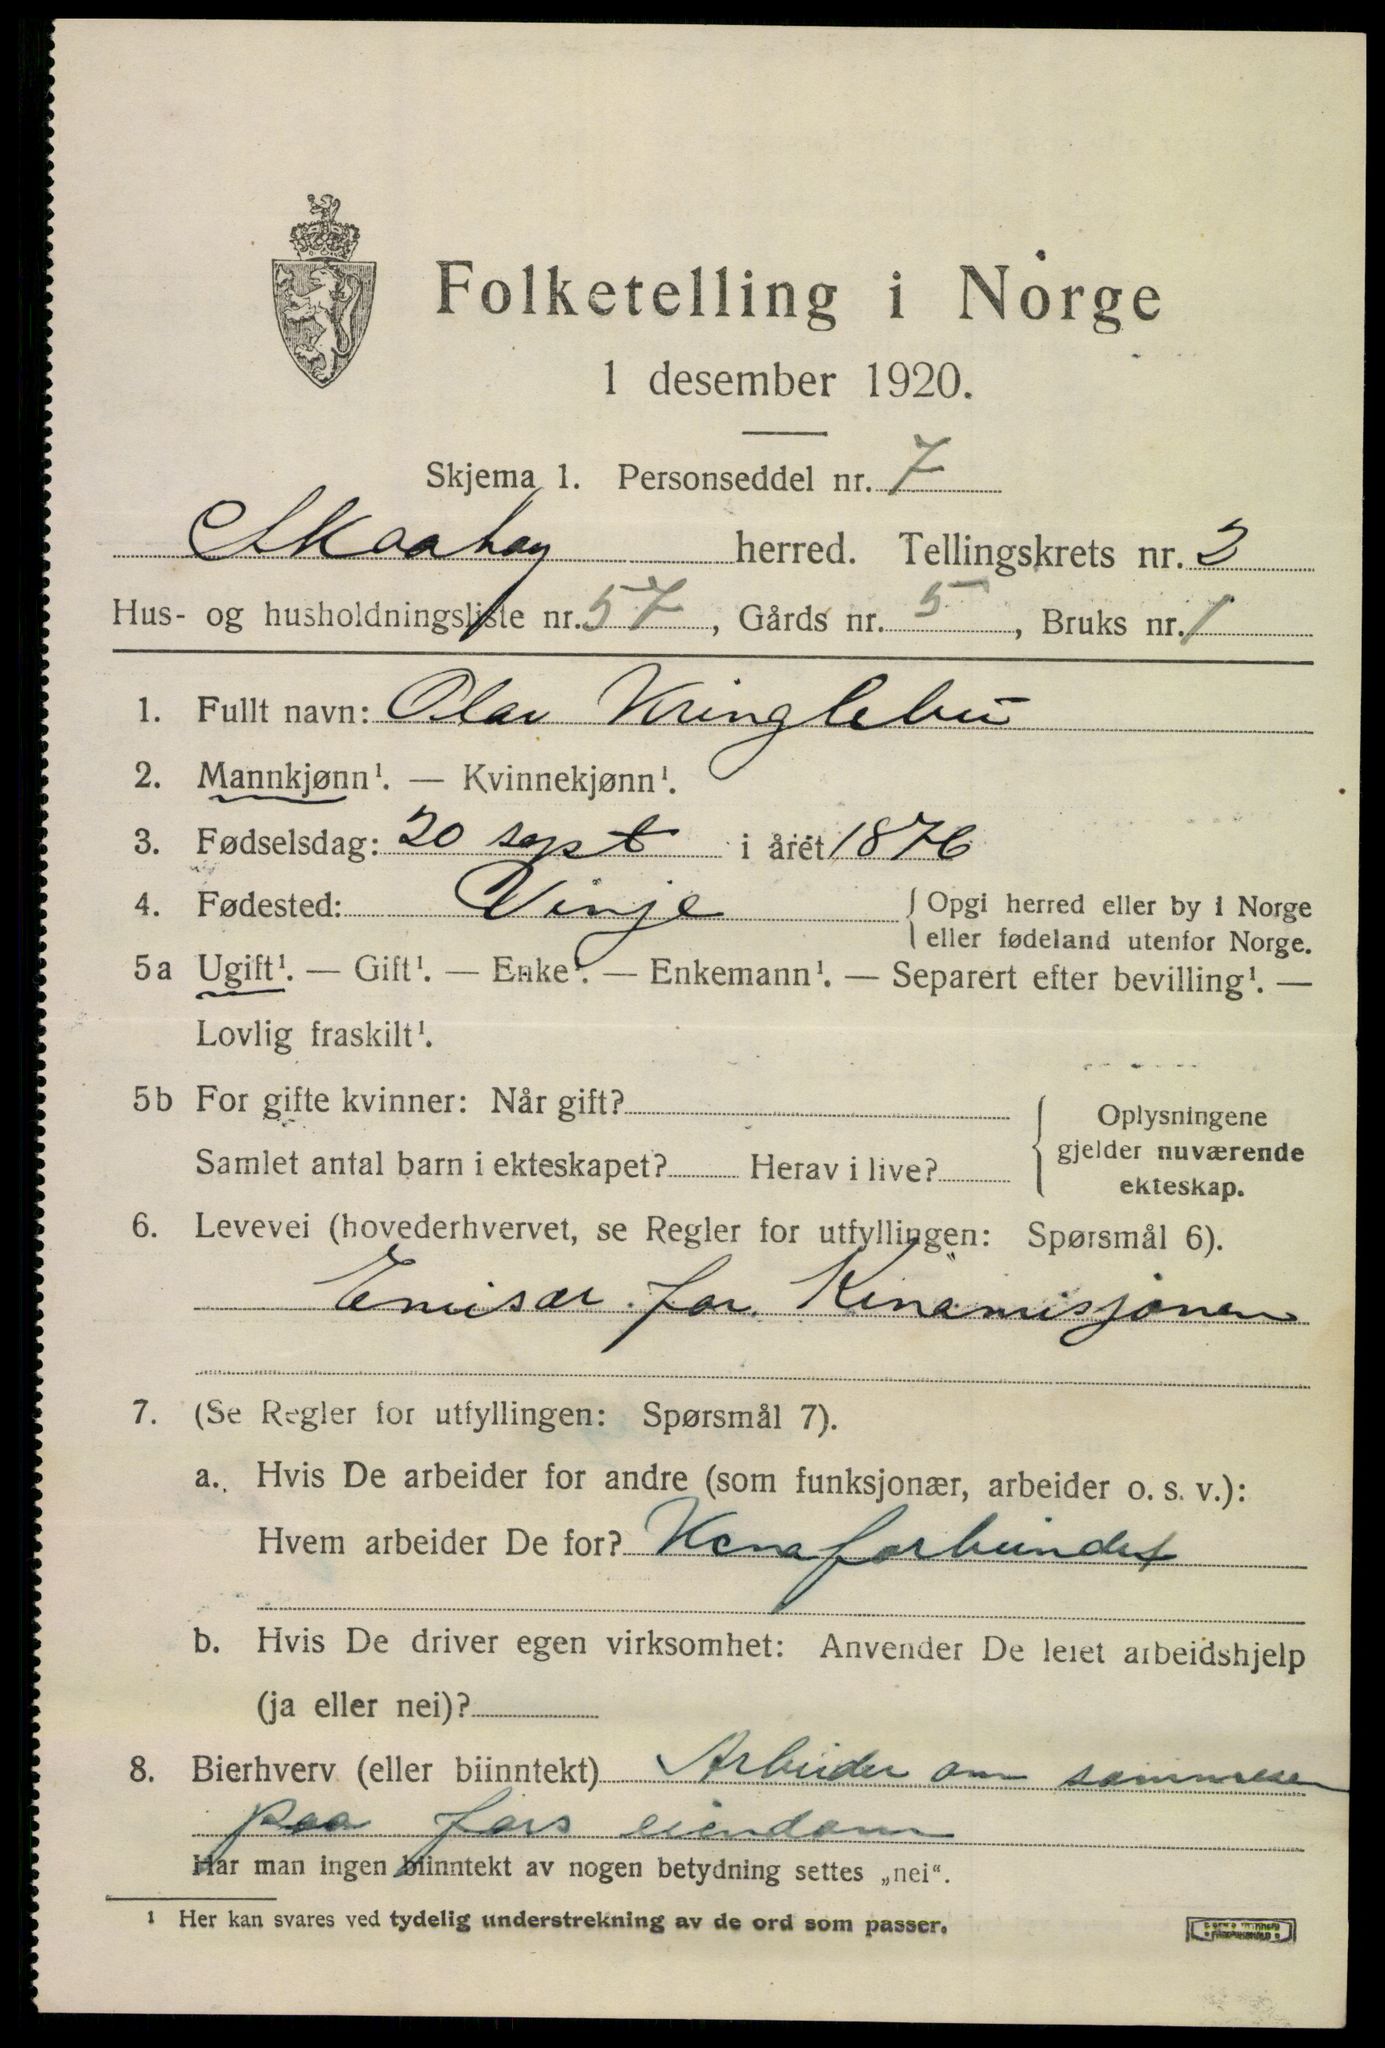 Folketelling i Norge
1 desember 1920.
Skjema 1. Personseddel nr. 7
Skaabøy herred. Tellingskrets nr. 2
Hus- og husholdningsliste nr. 57, Gårds nr. 5, Bruks nr. 1
1. Fullt navn: Olav Kringlebu
2. Mannkjønn¹. — Kvinnekjønn¹.
3. Fødselsdag: 20 sept i året 1876
4. Fødested: Vinje { Opgi herred eller by i Norge
eller fødeland utenfor Norge.
5a Ugift¹. — Gift¹. — Enke¹. — Enkemann¹. — Separert efter bevilling¹. —
Lovlig fraskilt¹.
5b For gifte kvinner: Når gift?
Samlet antal barn i ekteskapet? Herav i live?
{ Oplysningene
gjelder nuværende
ekteskap.
6. Levevei (hovederhvervet, se Regler for utfyllingen: Spørsmål 6).
Emisær for Kinamisjonen
7. (Se Regler for utfyllingen: Spørsmål 7).
a. Hvis De arbeider for andre (som funksjonær, arbeider o. s. v.):
Hvem arbeider De for? Kinaforbundet
b. Hvis De driver egen virksomhet: Anvender De leiet arbeidshjelp
(ja eller nei)?
8. Bierhverv (eller biinntekt) Arbeider om sommeren
paa fars eiendom
Har man ingen biinntekt av nogen betydning settes „nei“.
¹ Her kan svares ved tydelig understrekning av de ord som passer.